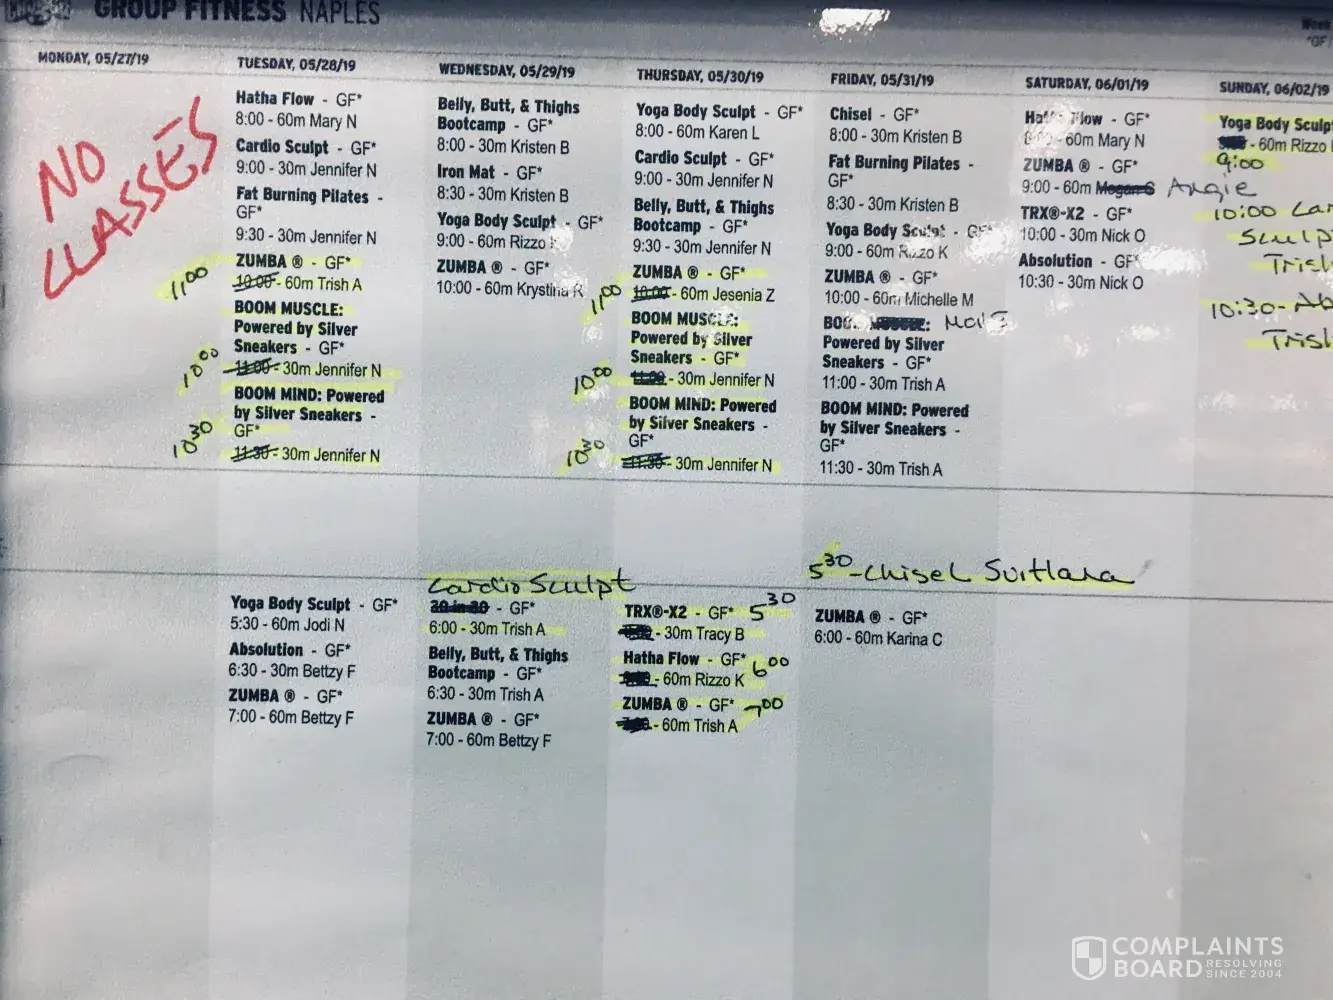 GROUP FITNESS NAPLES
MONDAY, 05/27/19
NO
CLASSES
TUESDAY, 05/28/19
Hatha Flow - GF*
8:00 - 60m Mary N
Cardio Sculpt - GF*
9:00 - 30m Jennifer N
Fat Burning Pilates -
GF*
9:30 - 30m Jennifer N
ZUMBA ® - GF*
11:00 10:00 - 60m Trish A
BOOM MUSCLE:
Powered by Silver
Sneakers - GF*
10:00 11:00 - 30m Jennifer N
BOOM MIND: Powered
by Silver Sneakers -
GF*
10:30 11:30 - 30m Jennifer N
Yoga Body Sculpt - GF*
5:30 - 60m Jodi N
Absolution - GF*
6:30 - 30m Bettzy F
ZUMBA ® - GF*
7:00 - 60m Bettzy F
WEDNESDAY, 05/29/19
Belly, Butt, & Thighs
Bootcamp - GF*
8:00 - 30m Kristen B
Iron Mat - GF*
8:30 - 30m Kristen B
Yoga Body Sculpt - GF*
9:00 - 60m Rizzo K
ZUMBA ® - GF*
10:00 - 60m Krystina R
Cardio Sculpt
30 in 30 - GF*
6:00 - 30m Trish A
Belly, Butt, & Thighs
Bootcamp - GF*
6:30 - 30m Trish A
ZUMBA ® - GF*
7:00 - 60m Bettzy F
THURSDAY, 05/30/19
Yoga Body Sculpt - GF*
8:00 - 60m Karen L
Cardio Sculpt - GF*
9:00 - 30m Jennifer N
Belly, Butt, & Thighs
Bootcamp - GF*
9:30 - 30m Jennifer N
ZUMBA ® - GF*
11:00 10:00 - 60m Jesenia Z
BOOM MUSCLE:
Powered by Silver
Sneakers - GF*
10:00 11:00 - 30m Jennifer N
BOOM MIND: Powered
by Silver Sneakers -
GF*
10:30 11:30 - 30m Jennifer N
TRX®-X2 - GF* 5:30
- 30m Tracy B
Hatha Flow - GF* 6:00
- 60m Rizzo K
ZUMBA ® - GF* 7:00
- 60m Trish A
FRIDAY, 05/31/19
Chisel - GF*
8:00 - 30m Kristen B
Fat Burning Pilates -
GF*
8:30 - 30m Kristen B
Yoga Body Sculpt - GF*
9:00 - 60m Rizzo K
ZUMBA ® - GF*
10:00 - 60m Michelle M
BOOM MUSCLE: Move
Powered by Silver
Sneakers - GF*
11:00 - 30m Trish A
BOOM MIND: Powered
by Silver Sneakers -
GF*
11:30 - 30m Trish A
5:30 - Chisel Svitlana
ZUMBA ® - GF*
6:00 - 60m Karina C
SATURDAY, 06/01/19
Hatha Flow - GF*
8:00 - 60m Mary N
ZUMBA ® - GF*
9:00 - 60m Megan S Angie
TRX®-X2 - GF*
10:00 - 30m Nick O
Absolution - GF*
10:30 - 30m Nick O
Week
*GF
SUNDAY, 06/02/19
Yoga Body Sculpt
- 60m Rizzo
9:00
10:00 Car
Sculpt
Trish
10:30 - Ab
Trish
COMPLAINTS
BOARD RESOLVING
SINCE 2004